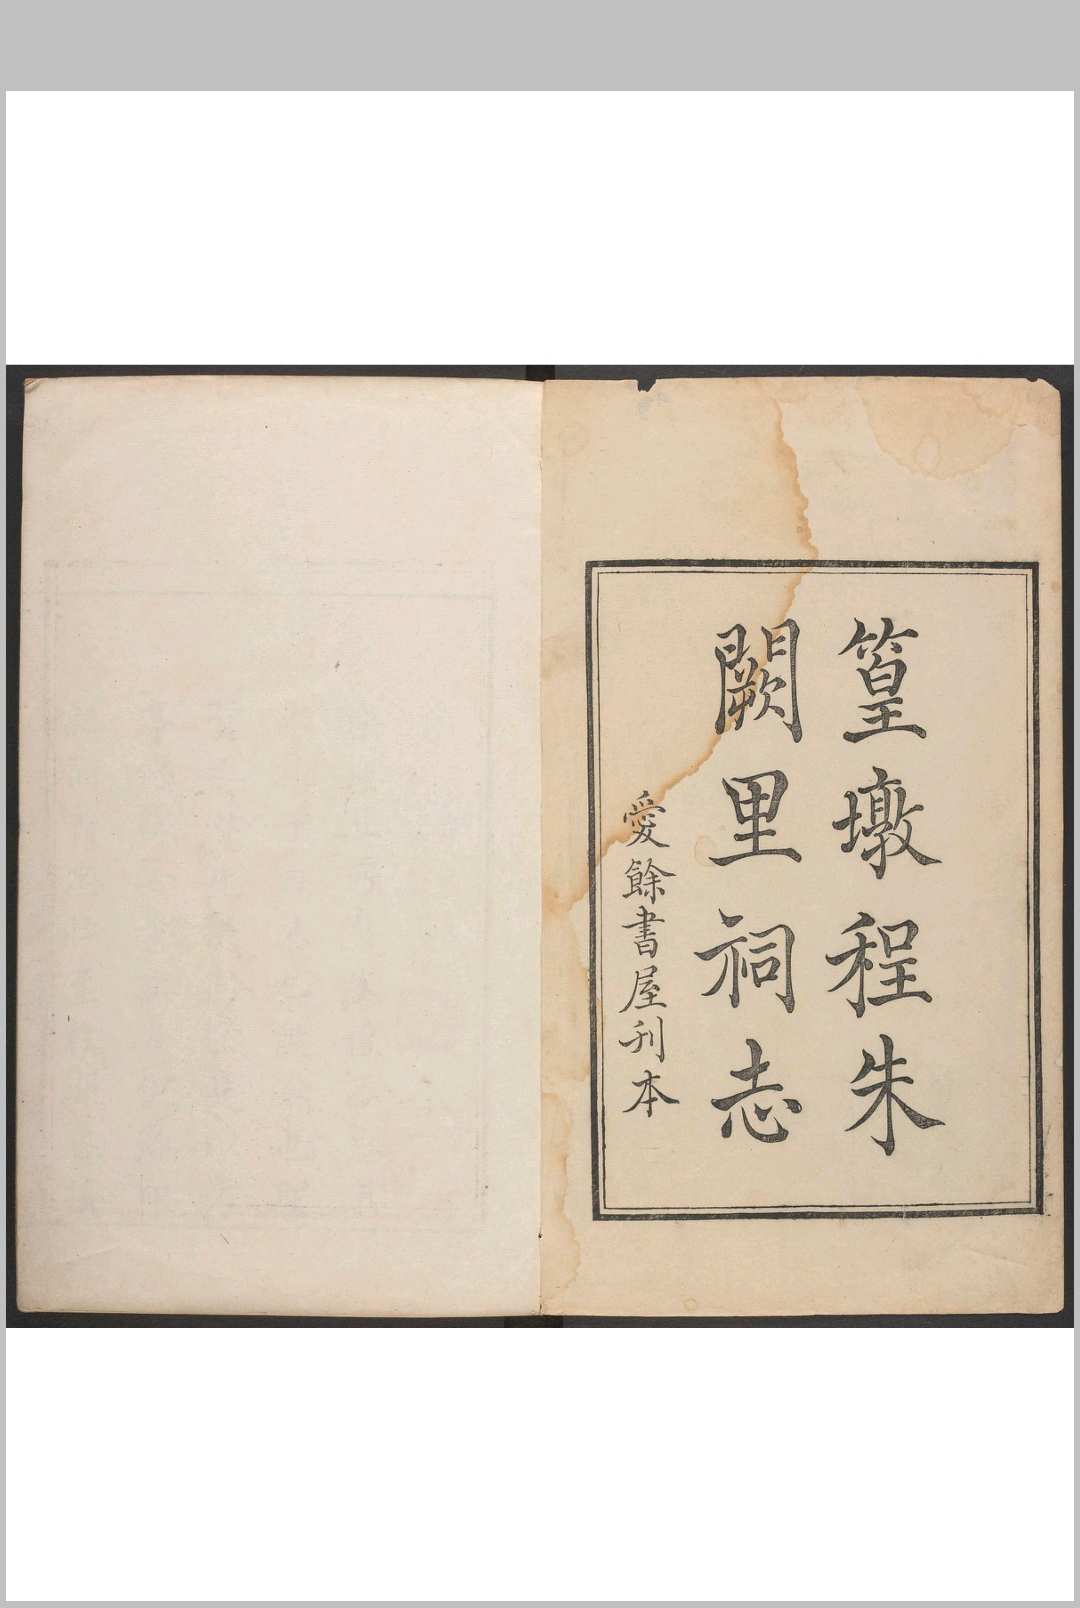 篁墩程朱
闕里祠志
愛餘書屋刊本